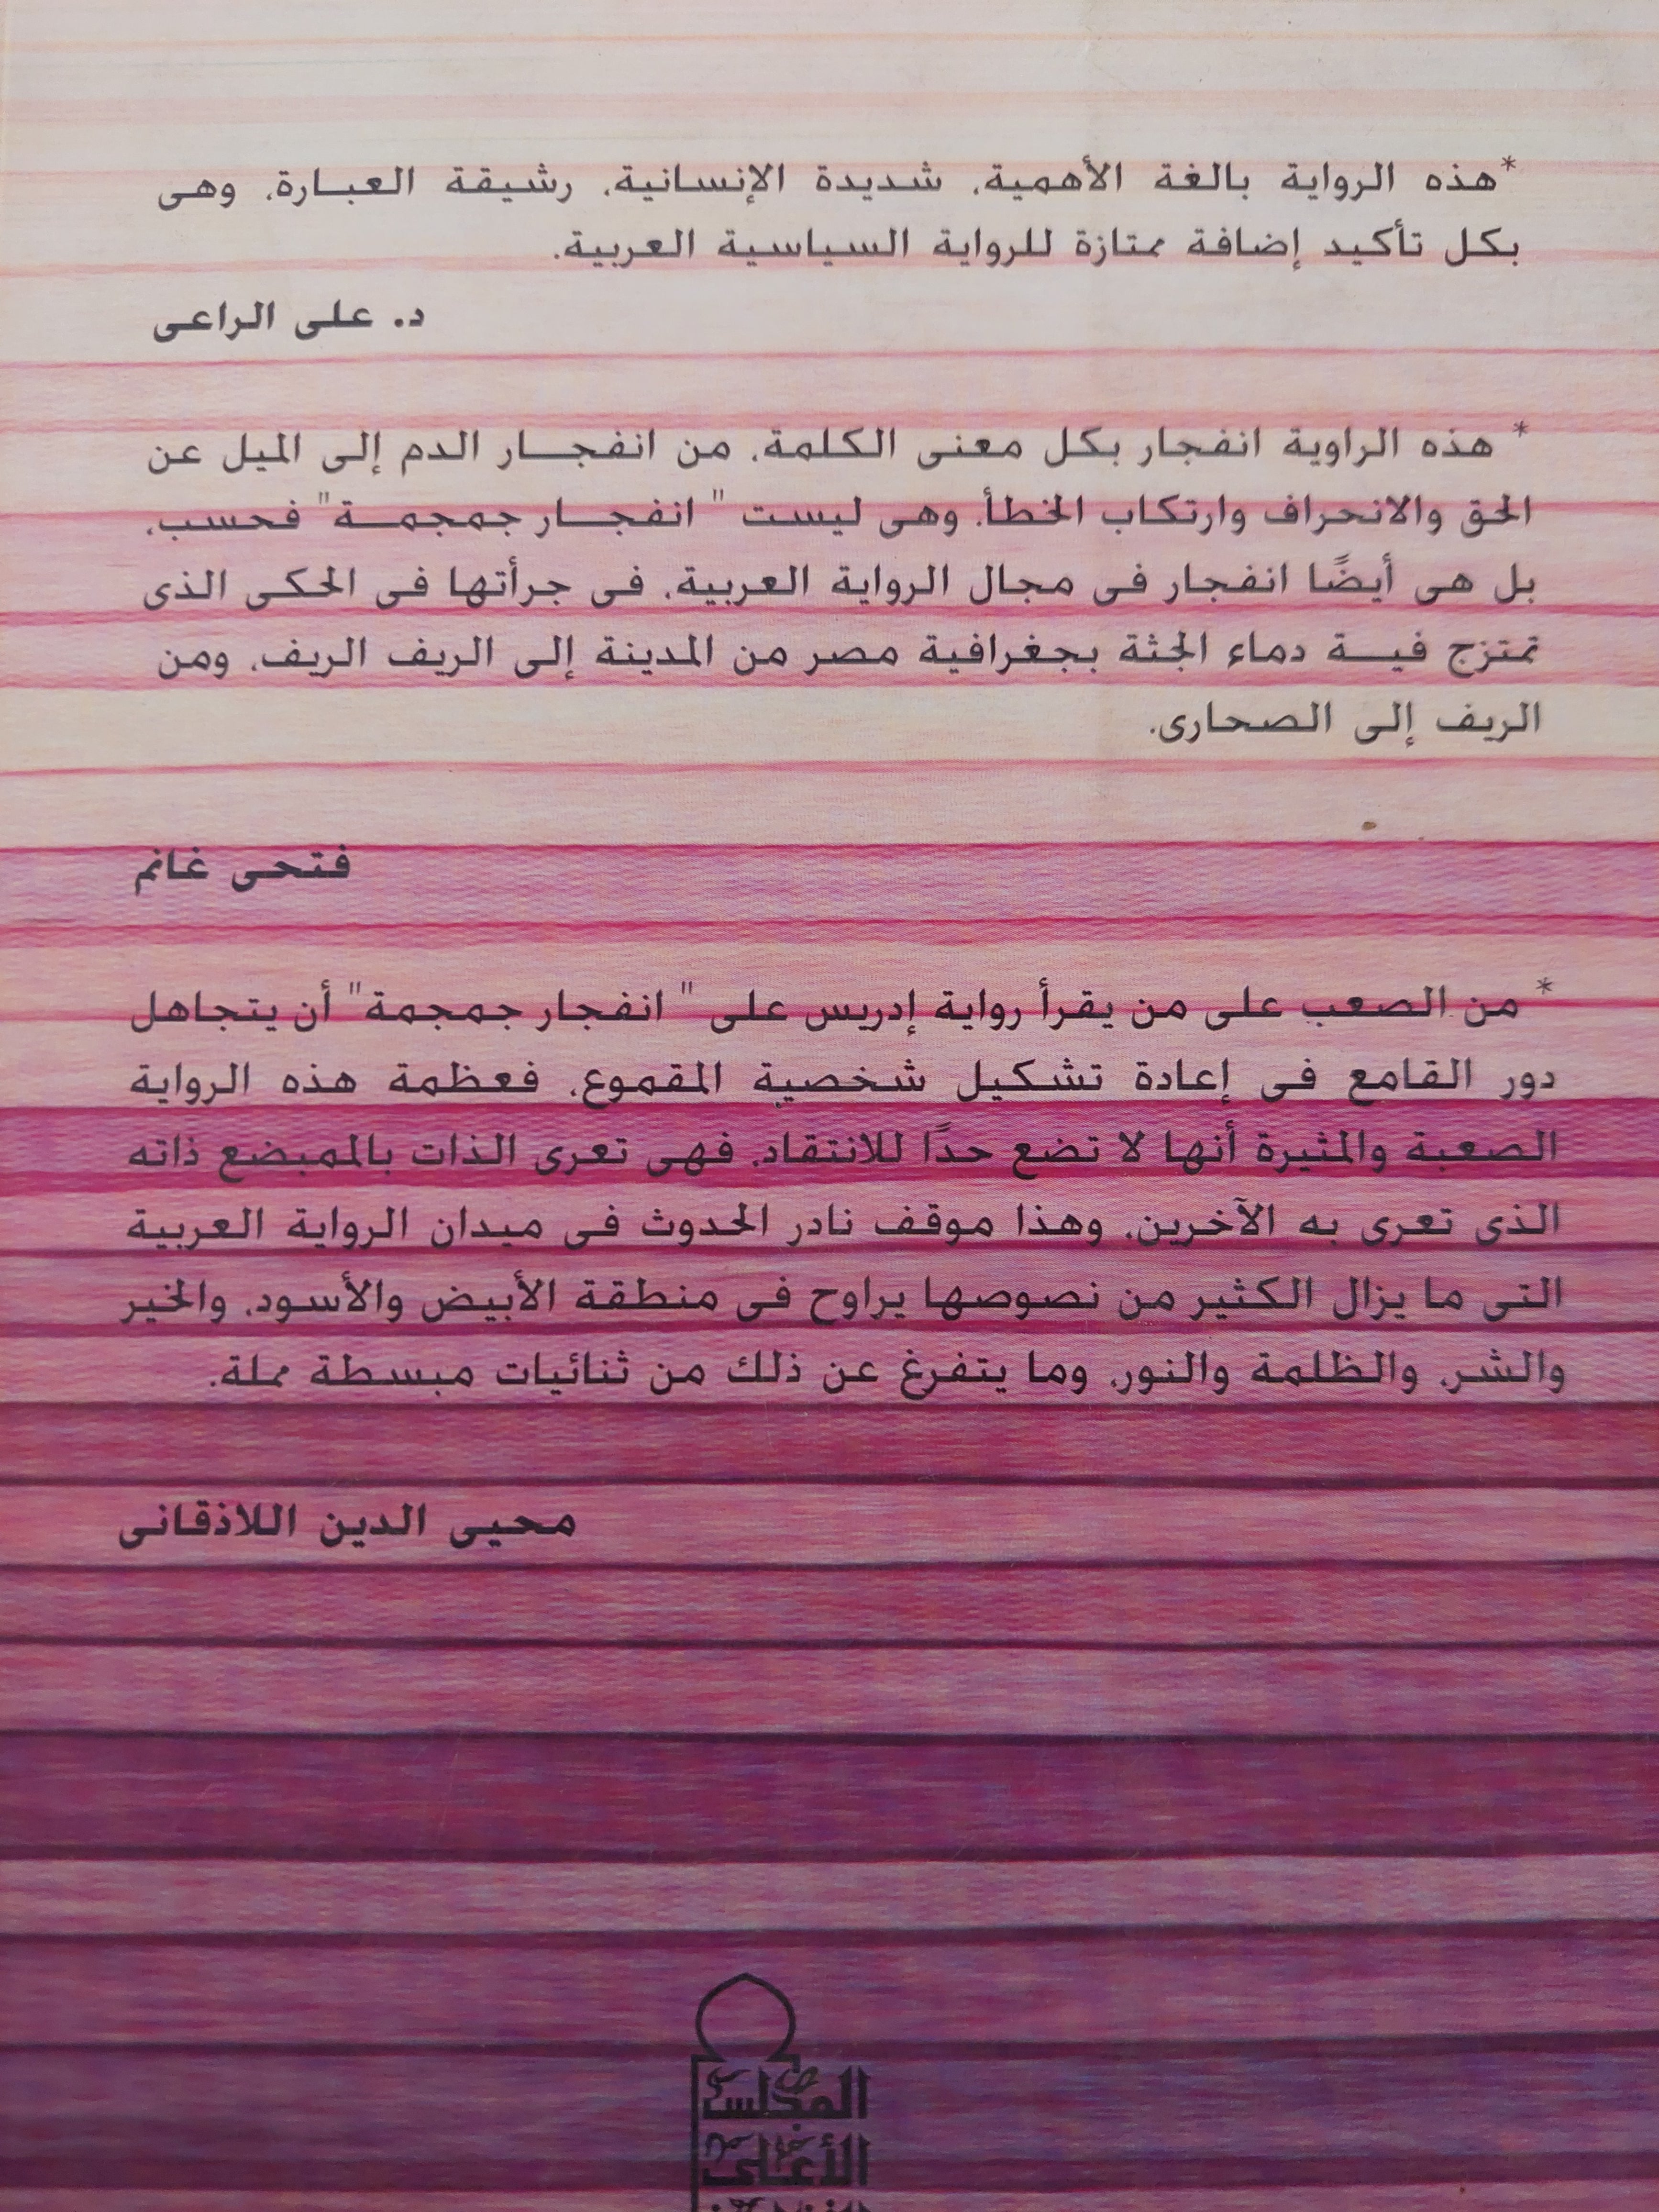 *هذه الرواية بالغة الأهمية، شديدة الإنسانية، رشيقة العبارة، وهى
بكل تأكيد إضافة ممتازة للرواية السياسية العربية.
د. على الراعى
* هذه الراوية انفجار بكل معنى الكلمة، من انفجار الدم إلى الميل عن
الحق والانحراف وارتكاب الخطأ، وهى ليست " انفجار جمجمة" فحسب،
بل هى أيضًا انفجار فى مجال الرواية العربية، فى جرأتها فى الحكى الذى
تمتزج فية دماء الجثة بجغرافية مصر من المدينة إلى الريف الريف، ومن
الريف إلى الصحارى.
فتحى غانم
* من الصعب على من يقرأ رواية إدريس على " انفجار جمجمة" أن يتجاهل
دور القامع فى إعادة تشكيل شخصية المقموع، فعظمة هذه الرواية
الصعبة والمثيرة أنها لا تضع حدًا للانتقاد، فهى تعرى الذات بالمبضع ذاته
الذى تعرى به الآخرين، وهذا موقف نادر الحدوث فى ميدان الرواية العربية
التى ما يزال الكثير من نصوصها يراوح فى منطقة الأبيض والأسود، والخير
والشر، والظلمة والنور، وما يتفرغ عن ذلك من ثنائيات مبسطة مملة.
محيى الدين اللاذقانى
المجلس
الأعلى